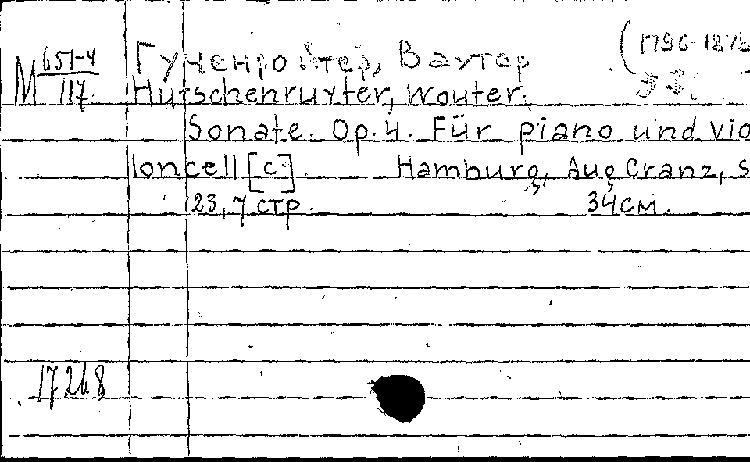 М 651-4/117. Гученройтер, Ваутер (1796-1878
Hutschenruyter, Wouter.
Sonate. Op. 4. Für piano und vio
loncell [c] Hamburg, Aug Cranz, s
23, 7 стр. 34см.
17268